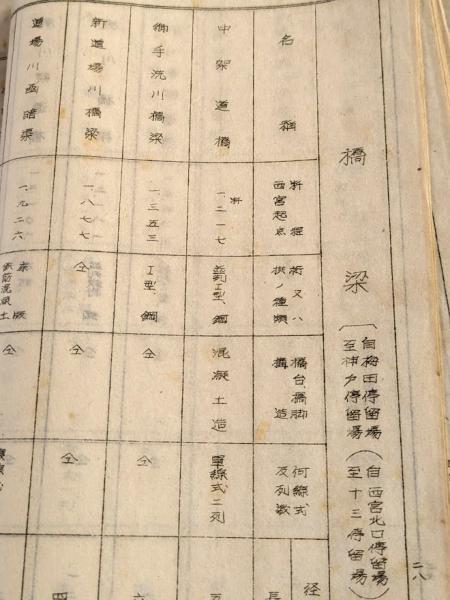 橋梁
自梅田停留場
至神戸停留場
自西宮北口停留場
至十三停留場
二八
名稱
西宮起点
桁又ハ
拱ノ種類
橋台橋脚
構造
何線式
及列数
径
長
中架道橋
一.二一七
鈑I型、鋼
混凝土造
単線式二列
五
御手洗川橋梁
一.三五三
I型、鋼
仝
仝
六
新道場川橋梁
一.八七七
仝
仝
仝
道場川函暗渠
一.九二六
鉄筋混凝土
床版
仝
四